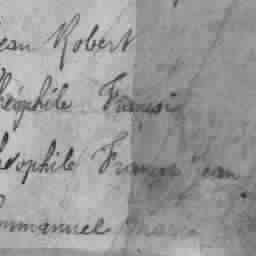 ean Robert
héophile François
héophile François Jean
mmanuel Marie